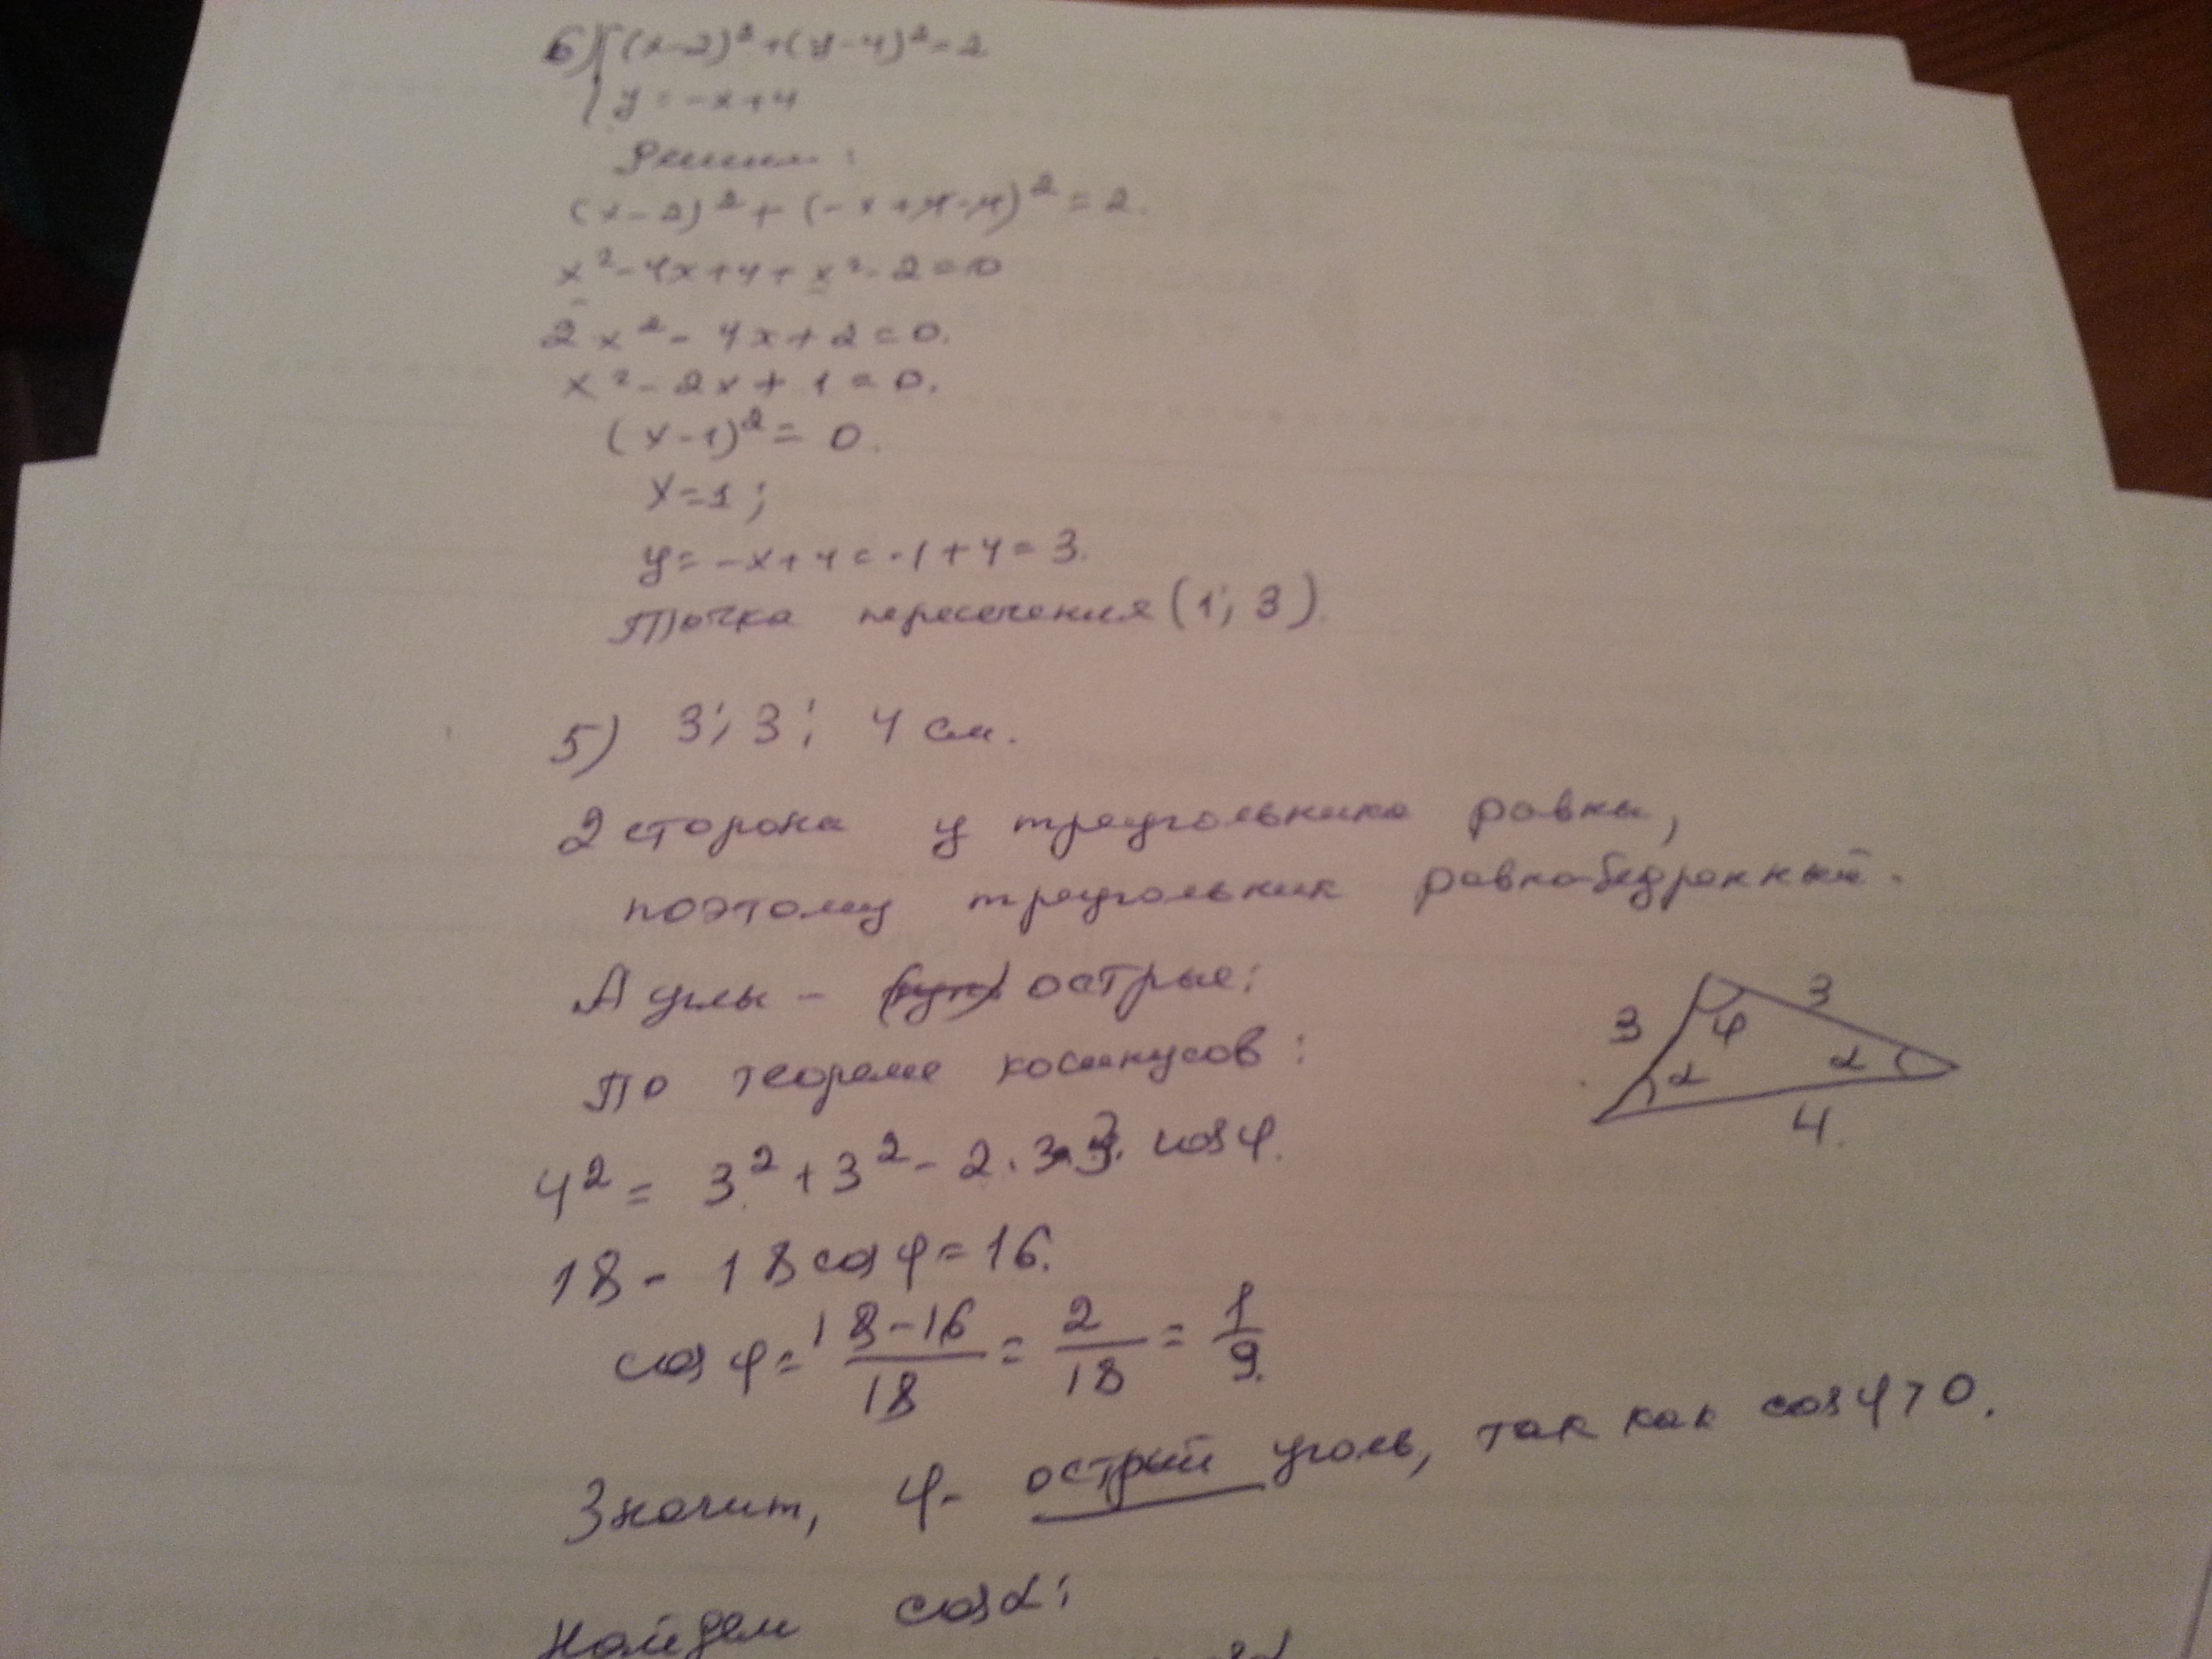 6) { (x-2)² + (y-4)² = 2
y = -x+4
Решим:
(x-2)² + (-x+4-4)² = 2.
x² - 4x + 4 + x² - 2 = 0
2x² - 4x + 2 = 0.
x² - 2x + 1 = 0.
(x-1)² = 0.
x = 1;
y = -x+4 = -1+4 = 3.
Точка пересечения (1; 3).
5) 3; 3; 4 см.
2 стороны у треугольника равны,
поэтому треугольник равнобедренный.
А углы - острые:
3
3
φ
α
α
4.
По теореме косинусов:
4² = 3² + 3² - 2·3·3·cosφ.
18 - 18cosφ = 16.
cosφ = 18-16/18 = 2/18 = 1/9.
Значит, φ - острый уголь, так как cosφ>0.
Найдем cosα: